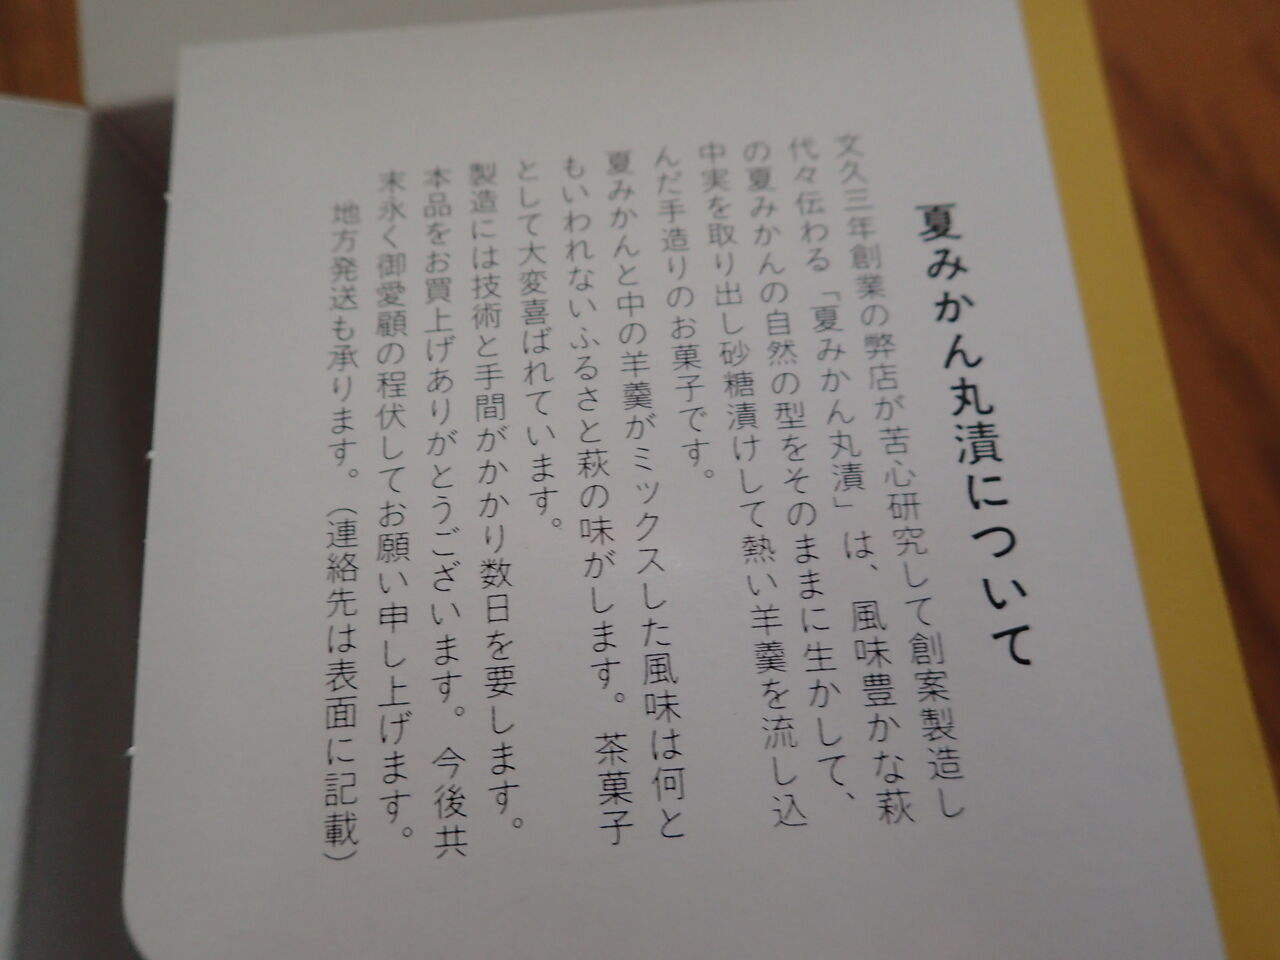 夏みかん丸漬について
文久三年創業の弊店が苦心研究して創案製造し
代々伝わる「夏みかん丸漬」は、風味豊かな萩
の夏みかんの自然の型をそのままに生かして、
中実を取り出し砂糖漬けして熱い羊羹を流し込
んだ手造りのお菓子です。
夏みかんと中の羊羹がミックスした風味は何と
もいわれないふるさと萩の味がします。茶菓子
として大変喜ばれています。
製造には技術と手間がかかり数日を要します。
本品をお買上げありがとうございます。今後共
末永く御愛顧の程伏してお願い申し上げます。
地方発送も承ります。（連絡先は表面に記載）